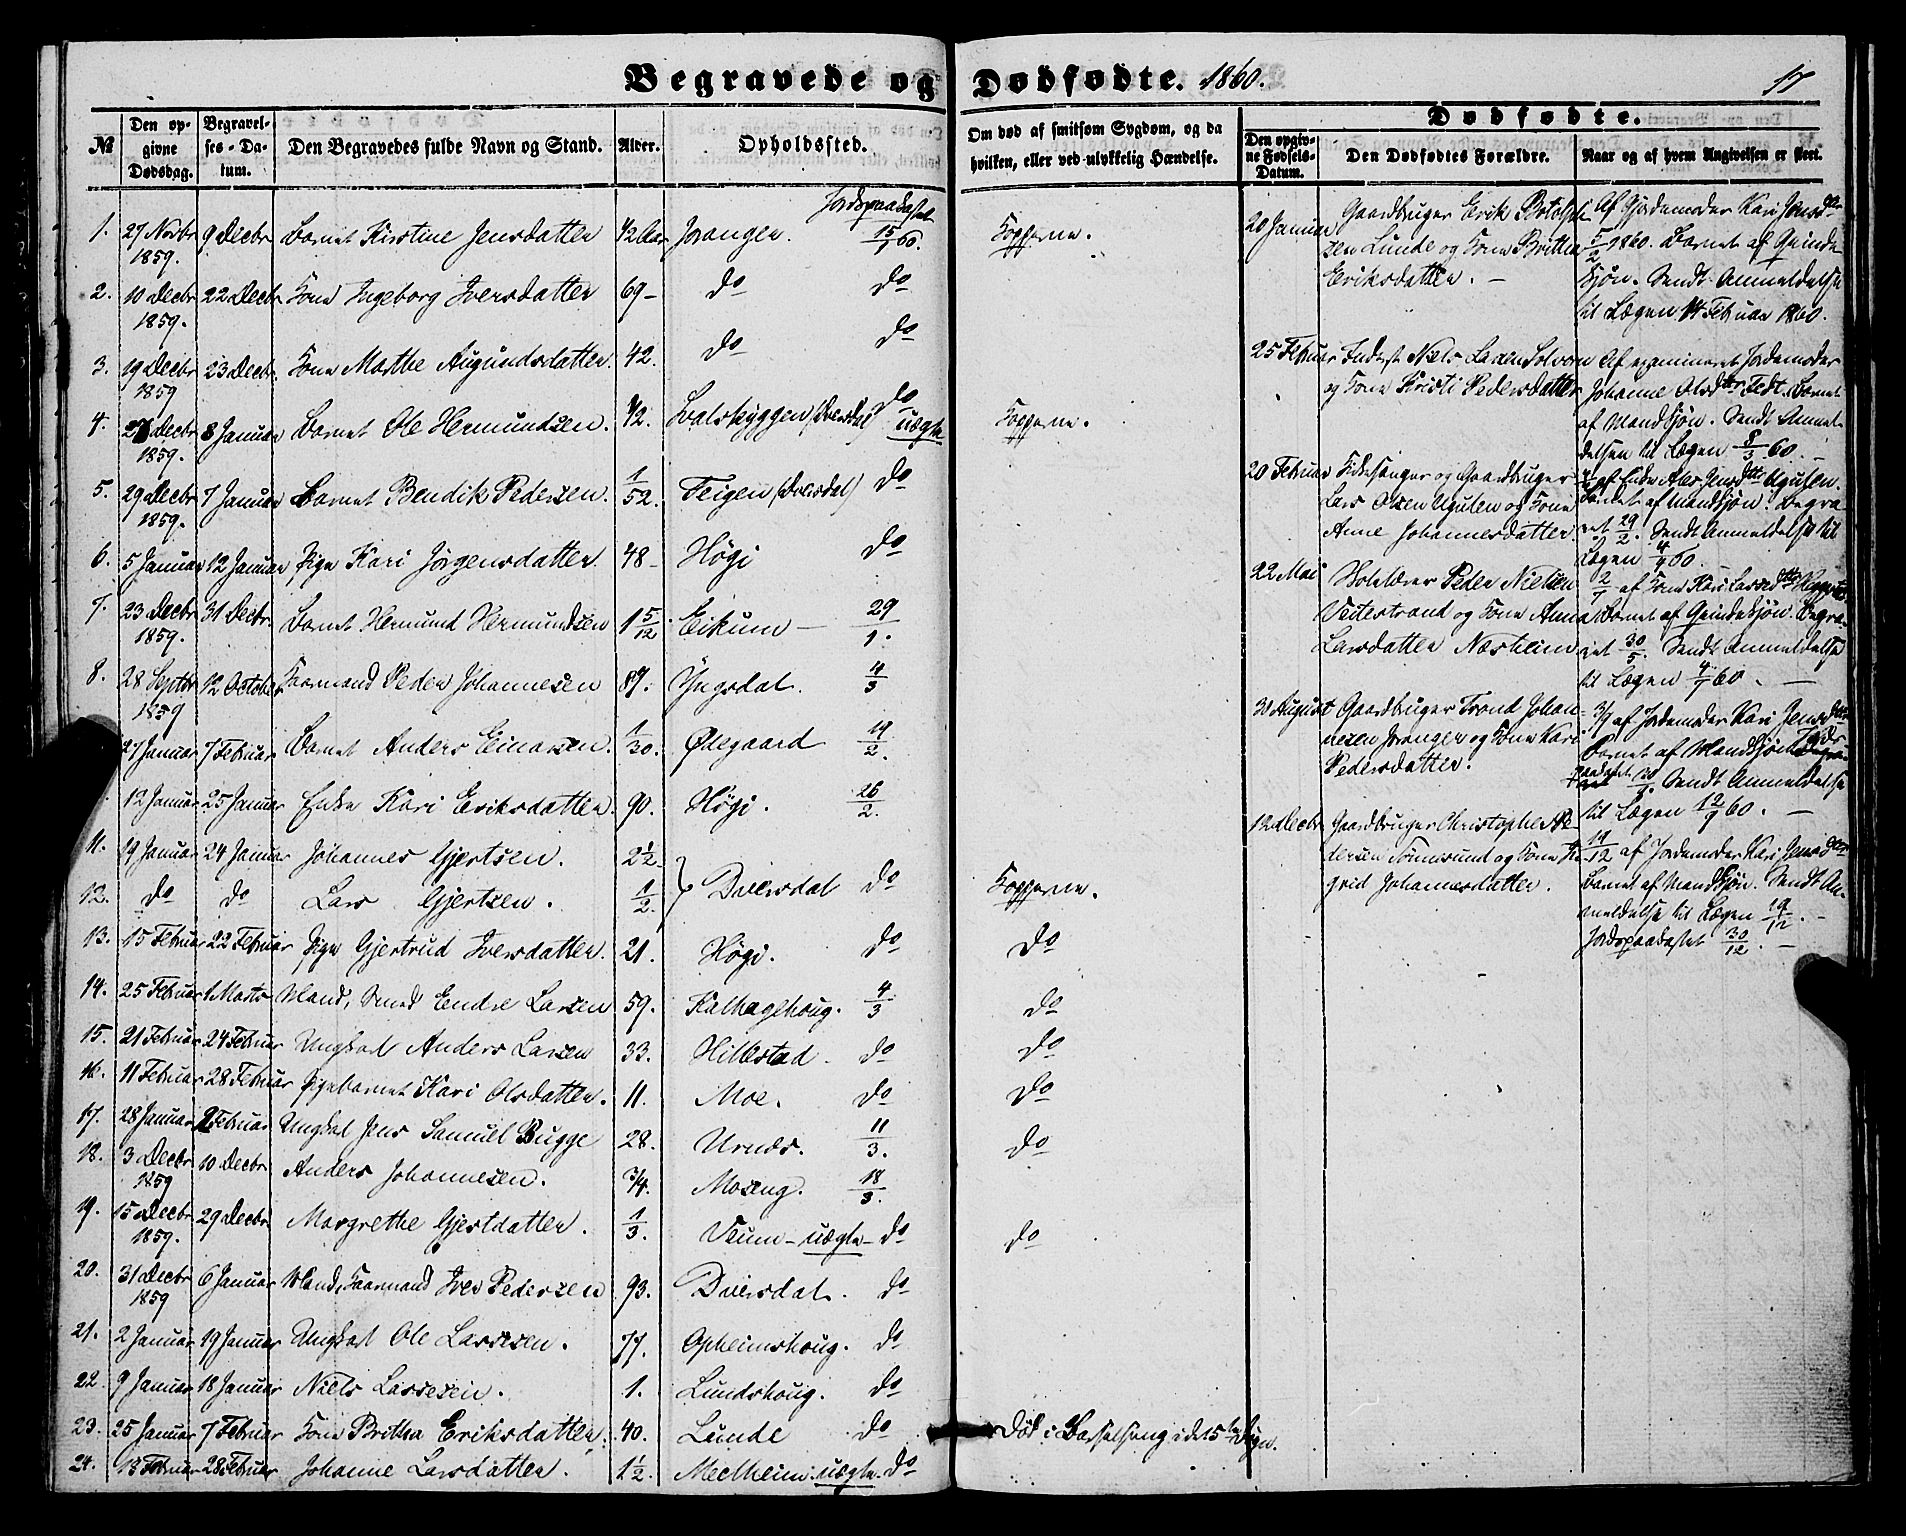 Begravede og Dødfødte. 1860. 17
№
Den opgivne Dødsdag.
Begravelses-Datum.
Den Begravedes fulde Navn og Stand.
Alder.
Opholdssted.
Om død af smitsom Sygdom, og da hvilken, eller ved ulykkelig Hændelse.
Dødfødte.
Den opgivne Fødsels-Datum.
Den Dødfødtes Forældre.
Naar og af hvem Angivelsen er skeet.
Jordspaakastet
1. 27 Novbr 1859. 9 Decbr Barnet Kirstine Jensdatter 1/2 Aar Joranger. 15/1 60. Kopperne.
2. 10 Decbr 1859. 22 Decbr Kone Ingeborg Iversdatter 69 - do do
3. 19 Decbr 1859 23 Decbr. Kone Marthe Augundsdatter. 42. do do
4. Decbr 1859. 8 Januar Barnet Ole Hermundsen. 1/2. (Dversdal) do uægte Kopperne.
5. 29 Decbr 1859. 7 Januar Barnet Bendik Pedersen. 1/52. Feigen (Dversdal) do
6. 5 Januar 12 Januar Pige Kari Jørgensdatter 48 - Høgi do
7. 23 Decbr 1859. 31 Decbr. Barnet Hermund Hermundsen 1 5/12 Eikum - 29/1.
8. 28 Septbr 1859 12 October Kaarmand Peder Johannesen 89. Yngsdal. 4/3
27 Januar 7 Februar Barnet Anders Einarsen. 1/30. Ødegaard 19/2.
12 Januar 25 Januar Enke Kari Eriksdatter. 90. Høgi. 26/2.
11. 19 Januar 24 Januar Johannes Gjertsen. 2 1/2. Dversdal do Kopperne.
12. do do Lars Gjertsen. 1/2.
13. 15 Februar 22 Februar Pige Gjertrud Iversdatter. 21. Høgi. do do
14. 25 Februar 1 Marts Mand, Smed Endre Larsen 59. Kalhagehoug. 4/3 do
15. 21 Februar 24 Februar Ungkarl Anders Larsen 33. Hillestad. do do
16. 11 Februar 28 Februar Pigebarnet Kari Olsdatter. 11. Moe. do do
17. 28 Januar Februar Ungkarl Jens Samuel Bugge 28. Urnæs. 11/3. do
18. 3 Decbr 1859 10 Decbr. Anders Johannesen. 3/4. Moseng. 18/3.
19. 15 Decbr 1859. 29 Decbr Margrethe Gjertdatter. 1/3. Veum - uægte - do do
20. 31 Decbr 1859 6 Januar Mand, Kaarmand Iver Pedersen 93. Dversdal. do
21. 2 Januar 19 Januar Ungkarl Ole Lassesen. 77. Opheimshoug. do
22. 9 Januar 18 Januar Niels Lassesen. 1. Lundshoug. do
23. 25 Januar 7 Februar Kone Britha Eriksdatter. 40. Lunde do Død i Barselseng i det 5te Døgn.
24. 18 Februar 28 Februar Johanne Larsdatter. 1 1/2. Melheim. uægte. do
20 Januar
Gaardbruger Erik Botolf-
sen Lunde og Kone Britha
Eriksdatter. -
Af Gjordemoder Kari Jensdtr
5/2 1860. Barnet af Qvinde-
kjøn. Sendt Anmeldelse
til Lægen 14 Februar 1860.
25 Februar
Inderst Niels Larsen Solvorn
og Kone Kristi Pedersdatter
Af examineret Jordemoder
Johanne Olsdtr Fedt. Barnet
af Mandkjøn. Sendt Anmel-
delsen til Lægen 8/3 60. -
20 Februar
Kirkesanger og Gaardbruger
Lars Olsen Ugulen og Kone
Anne Johannesdatter.
af Enke Jensdtr Ugulen.
Barnet af Mandkjøn. Begra-
vet 29/2. Sendt Anmeldelse til
Lægen 4/4 60.
22 Mai
Skolelærer Peder Nielsen
Veitestrand og Kone Anna
Larsdatter Næsheim
2/7 af Kone Kari Lassedtr
Barnet af Qvindekjøn. Begra-
vet 30/5. Sendt Anmeldelse
til Lægen 4/7 60. -
30 August
Gaardbruger Trond Johan-
nesen Joranger og Kone Kari
Pedersdatter.
3/9 af Jordemoder Kari Jensdtr
Barnet af Mandkjøn. Jords-
paakastet. Sendt Anmeldelse
til Lægen 12/9 60. -
12 Decbr
Gaardbruger Christopher Pe-
dersen Kone In-
grid Johannesdatter.
17/12 af Jordemoder Kari Jensdtr
Barnet af Mandkjøn. Sendt An-
meldelse til Lægen 19/12. -
Jordspaakastet 30/12. -